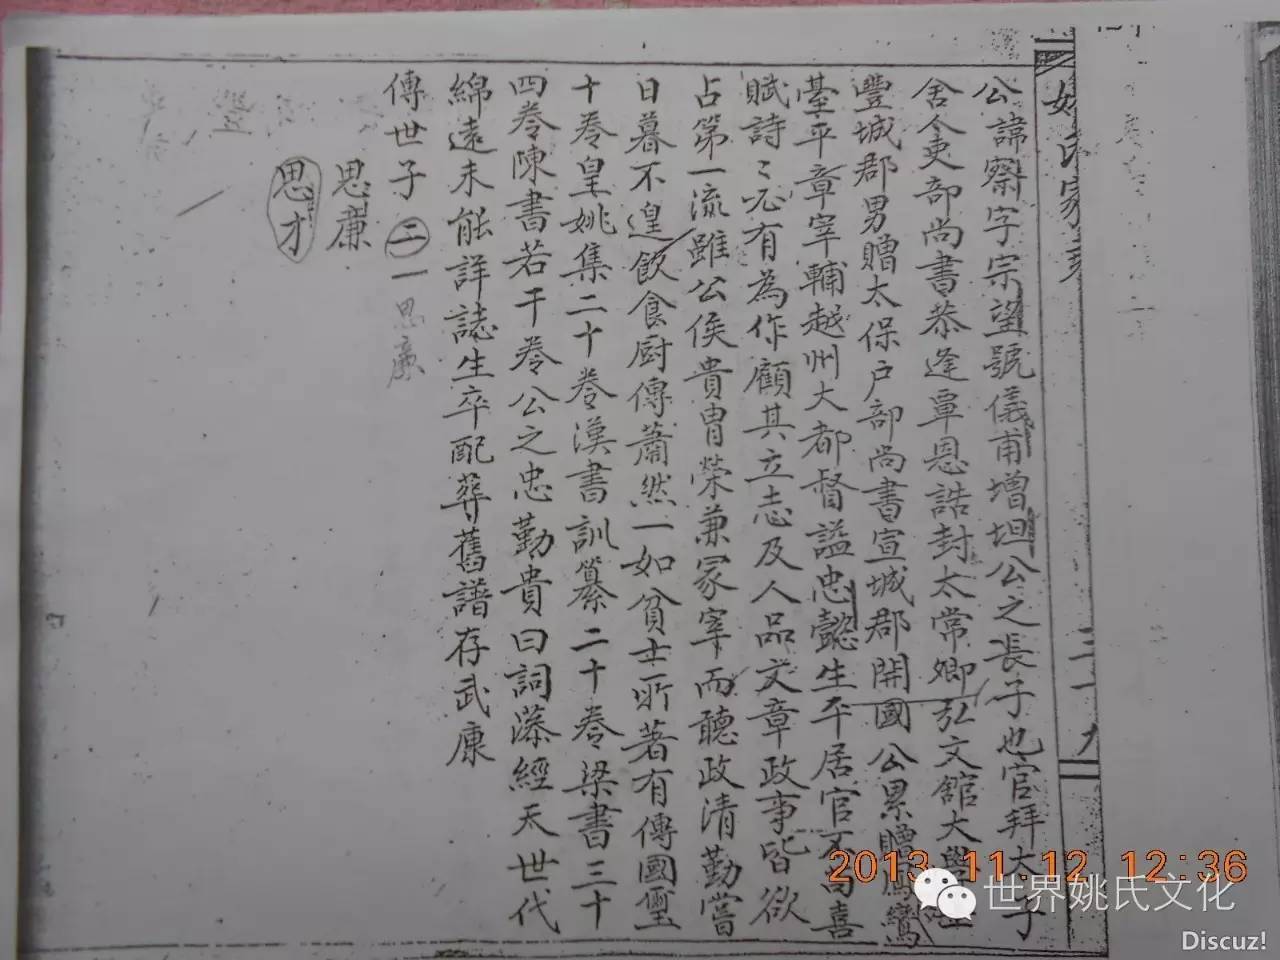 姚氏家乘
三十九
公諱察字宗望號儀甫增坦公之長子也官拜太子
舍人吏部尚書恭逢覃恩誥封太常卿弘文館大學
豐城郡男贈太保戶部尚書宣城郡開國公累贈鸞
臺平章宰輔越州大都督謚忠懿生平居官不尚喜
賦詩〻必有為作顧其立志及人品文章政事皆欲
占第一流雖公侯貴胄榮兼冢宰而聽政清勤嘗
日暮不遑飲食厨傳蕭然一如貧士所著有傳國璽
十卷皇姚集二十卷漢書訓纂二十卷梁書三十
四卷陳書若干卷公之忠勤貴曰詞藻經天世代
綿遠未能詳誌生卒配葬舊譜存武康
傳世子二一思廉
思廉
思才
2013.11.12 12:36
世界姚氏文化
Discuz!